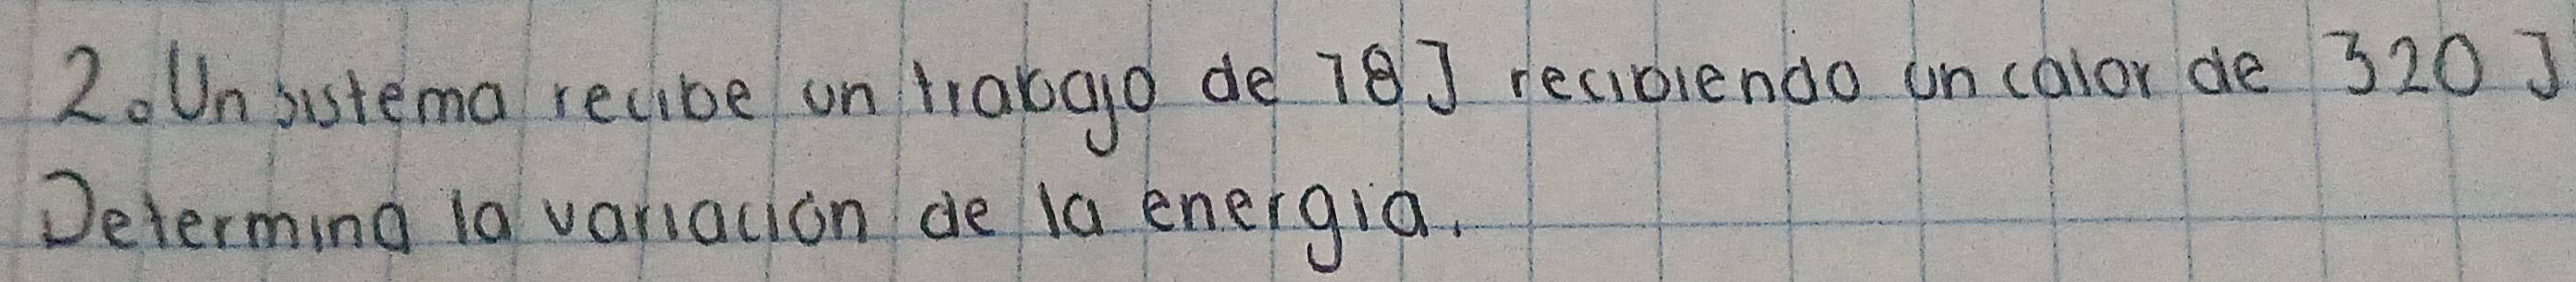 2. Un sistema recibe un trabajo de 78 J recibiendo un calor de 320 J
Determina la variación de la energia.